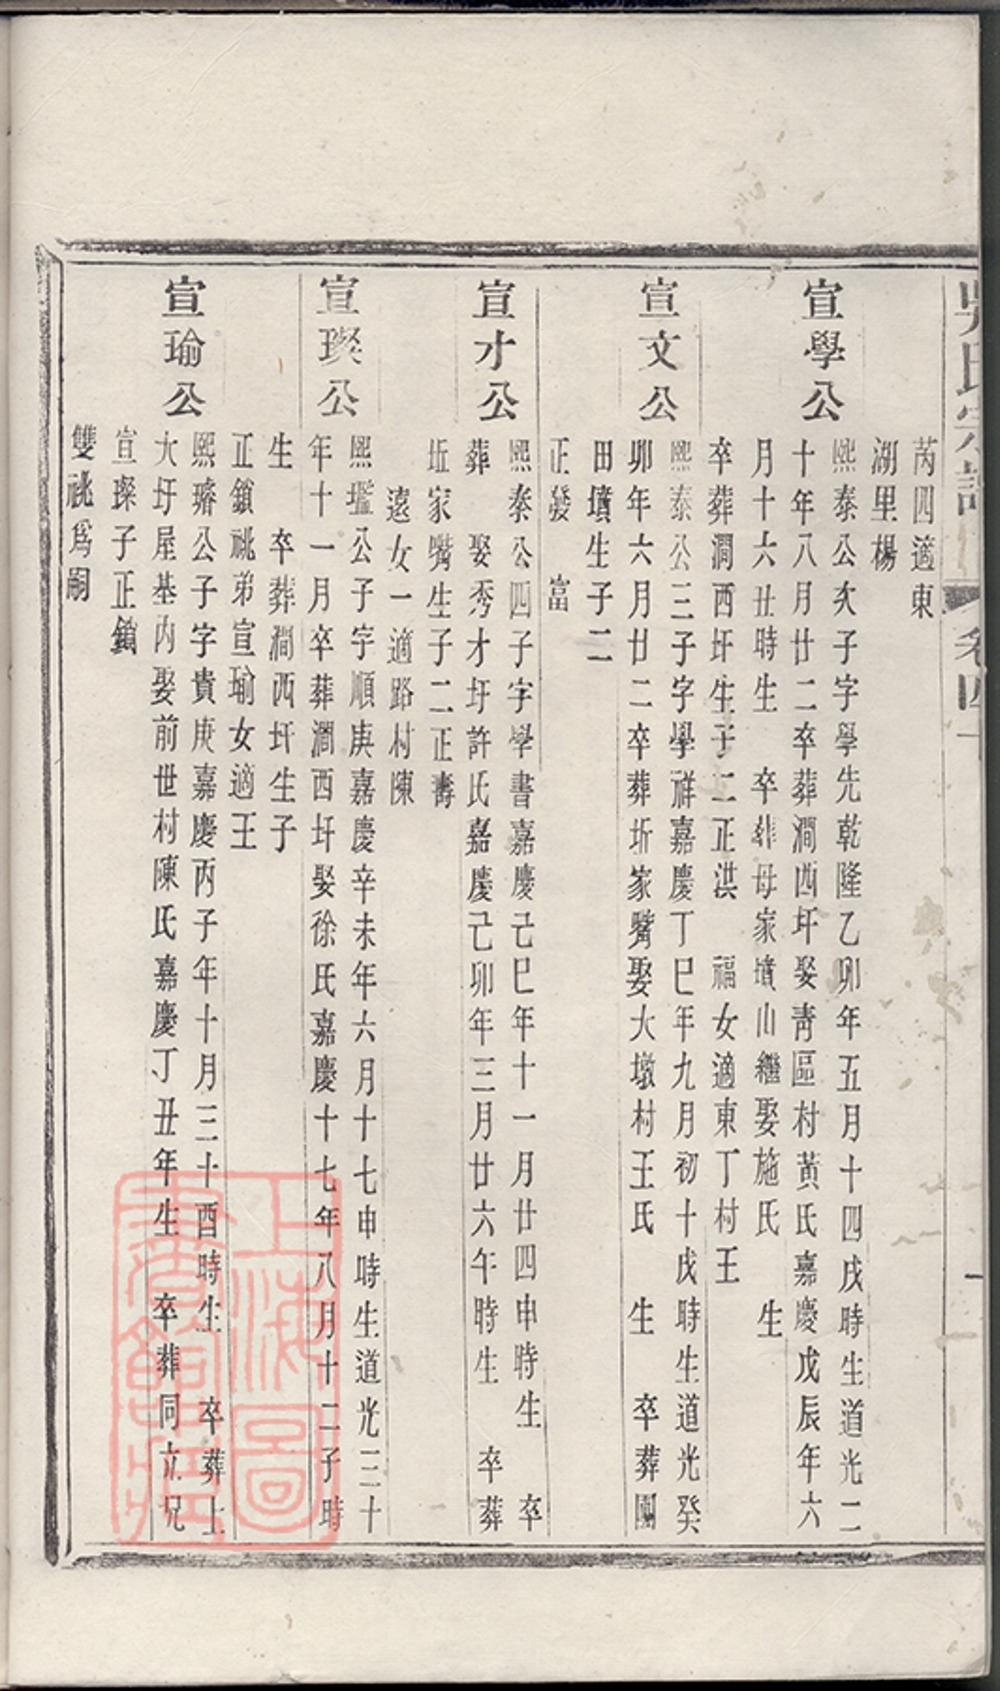 吳氏宗譜 卷四十
芮四適東
湖里楊
宣學公
熙泰公次子字學先乾隆乙卯年五月十四戌時生道光二
十年八月廿二卒葬澗西圩娶靑區村黃氏嘉慶戊辰年六
月十六丑時生 卒葬母家墳山繼娶施氏 生
卒葬澗西圩生子二正洪 福女適東丁村王
宣文公
熙泰公三子字學祥嘉慶丁巳年九月初十戌時生道光癸
卯年六月廿二卒葬圻家嘴娶大墩村王氏 生 卒葬團
田墳生子二
正發 富
宣才公
熙泰公四子字學書嘉慶己巳年十一月廿四申時生 卒
葬 娶秀才圩許氏嘉慶己卯年三月廿六午時生 卒葬
坵家嘴生子二正壽
遠女一適路村陳
宣璨公
熙璥公子字順庚嘉慶辛未年六月十七申時生道光三十
年十一月卒葬澗西圩娶徐氏嘉慶十七年八月十二子時
生 卒葬澗西圩生子
正鎖祧弟宣瑜女適王
宣瑜公
熙璿公子字貴庚嘉慶丙子年十月三十酉時生 卒葬上
大圩屋基內娶前世村陳氏嘉慶丁丑年生 卒葬同立兄
宣璨子正鎖
雙祧爲嗣
上海圖
書館藏